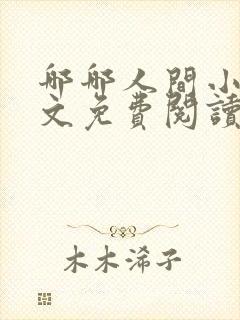 那那人間小
文免費閱讀
木木浠子